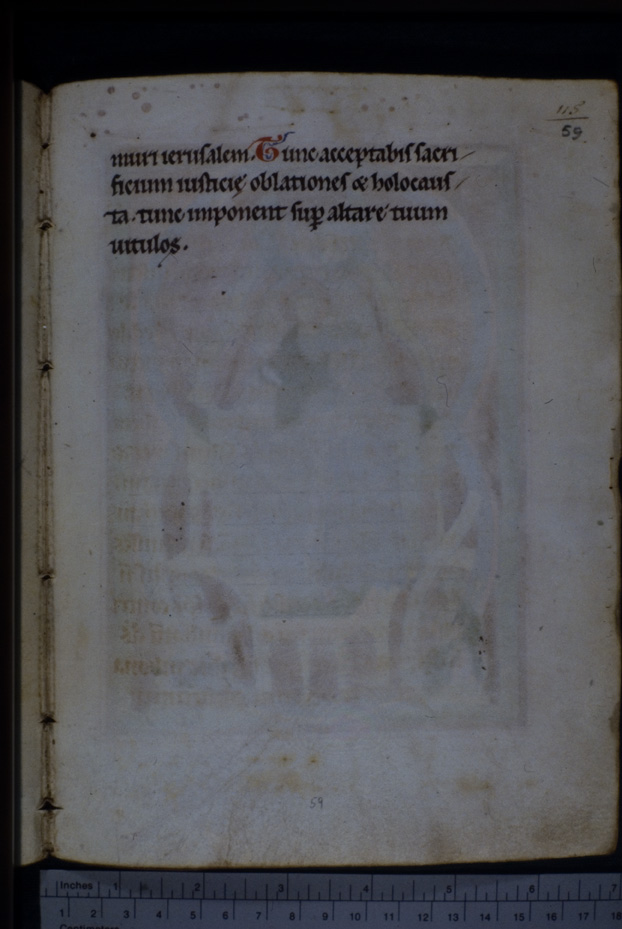 115
59
muri ierusalem. Tunc acceptabis sacri
ficium iusticię oblationes & holocaus
ta. tunc imponent sup̱ altare tuum
uitulos.
59
Inches 1 2 3 4 5 6 7
1 2 3 4 5 6 7 8 9 10 11 12 13 14 15 16 17 18
Centimeters